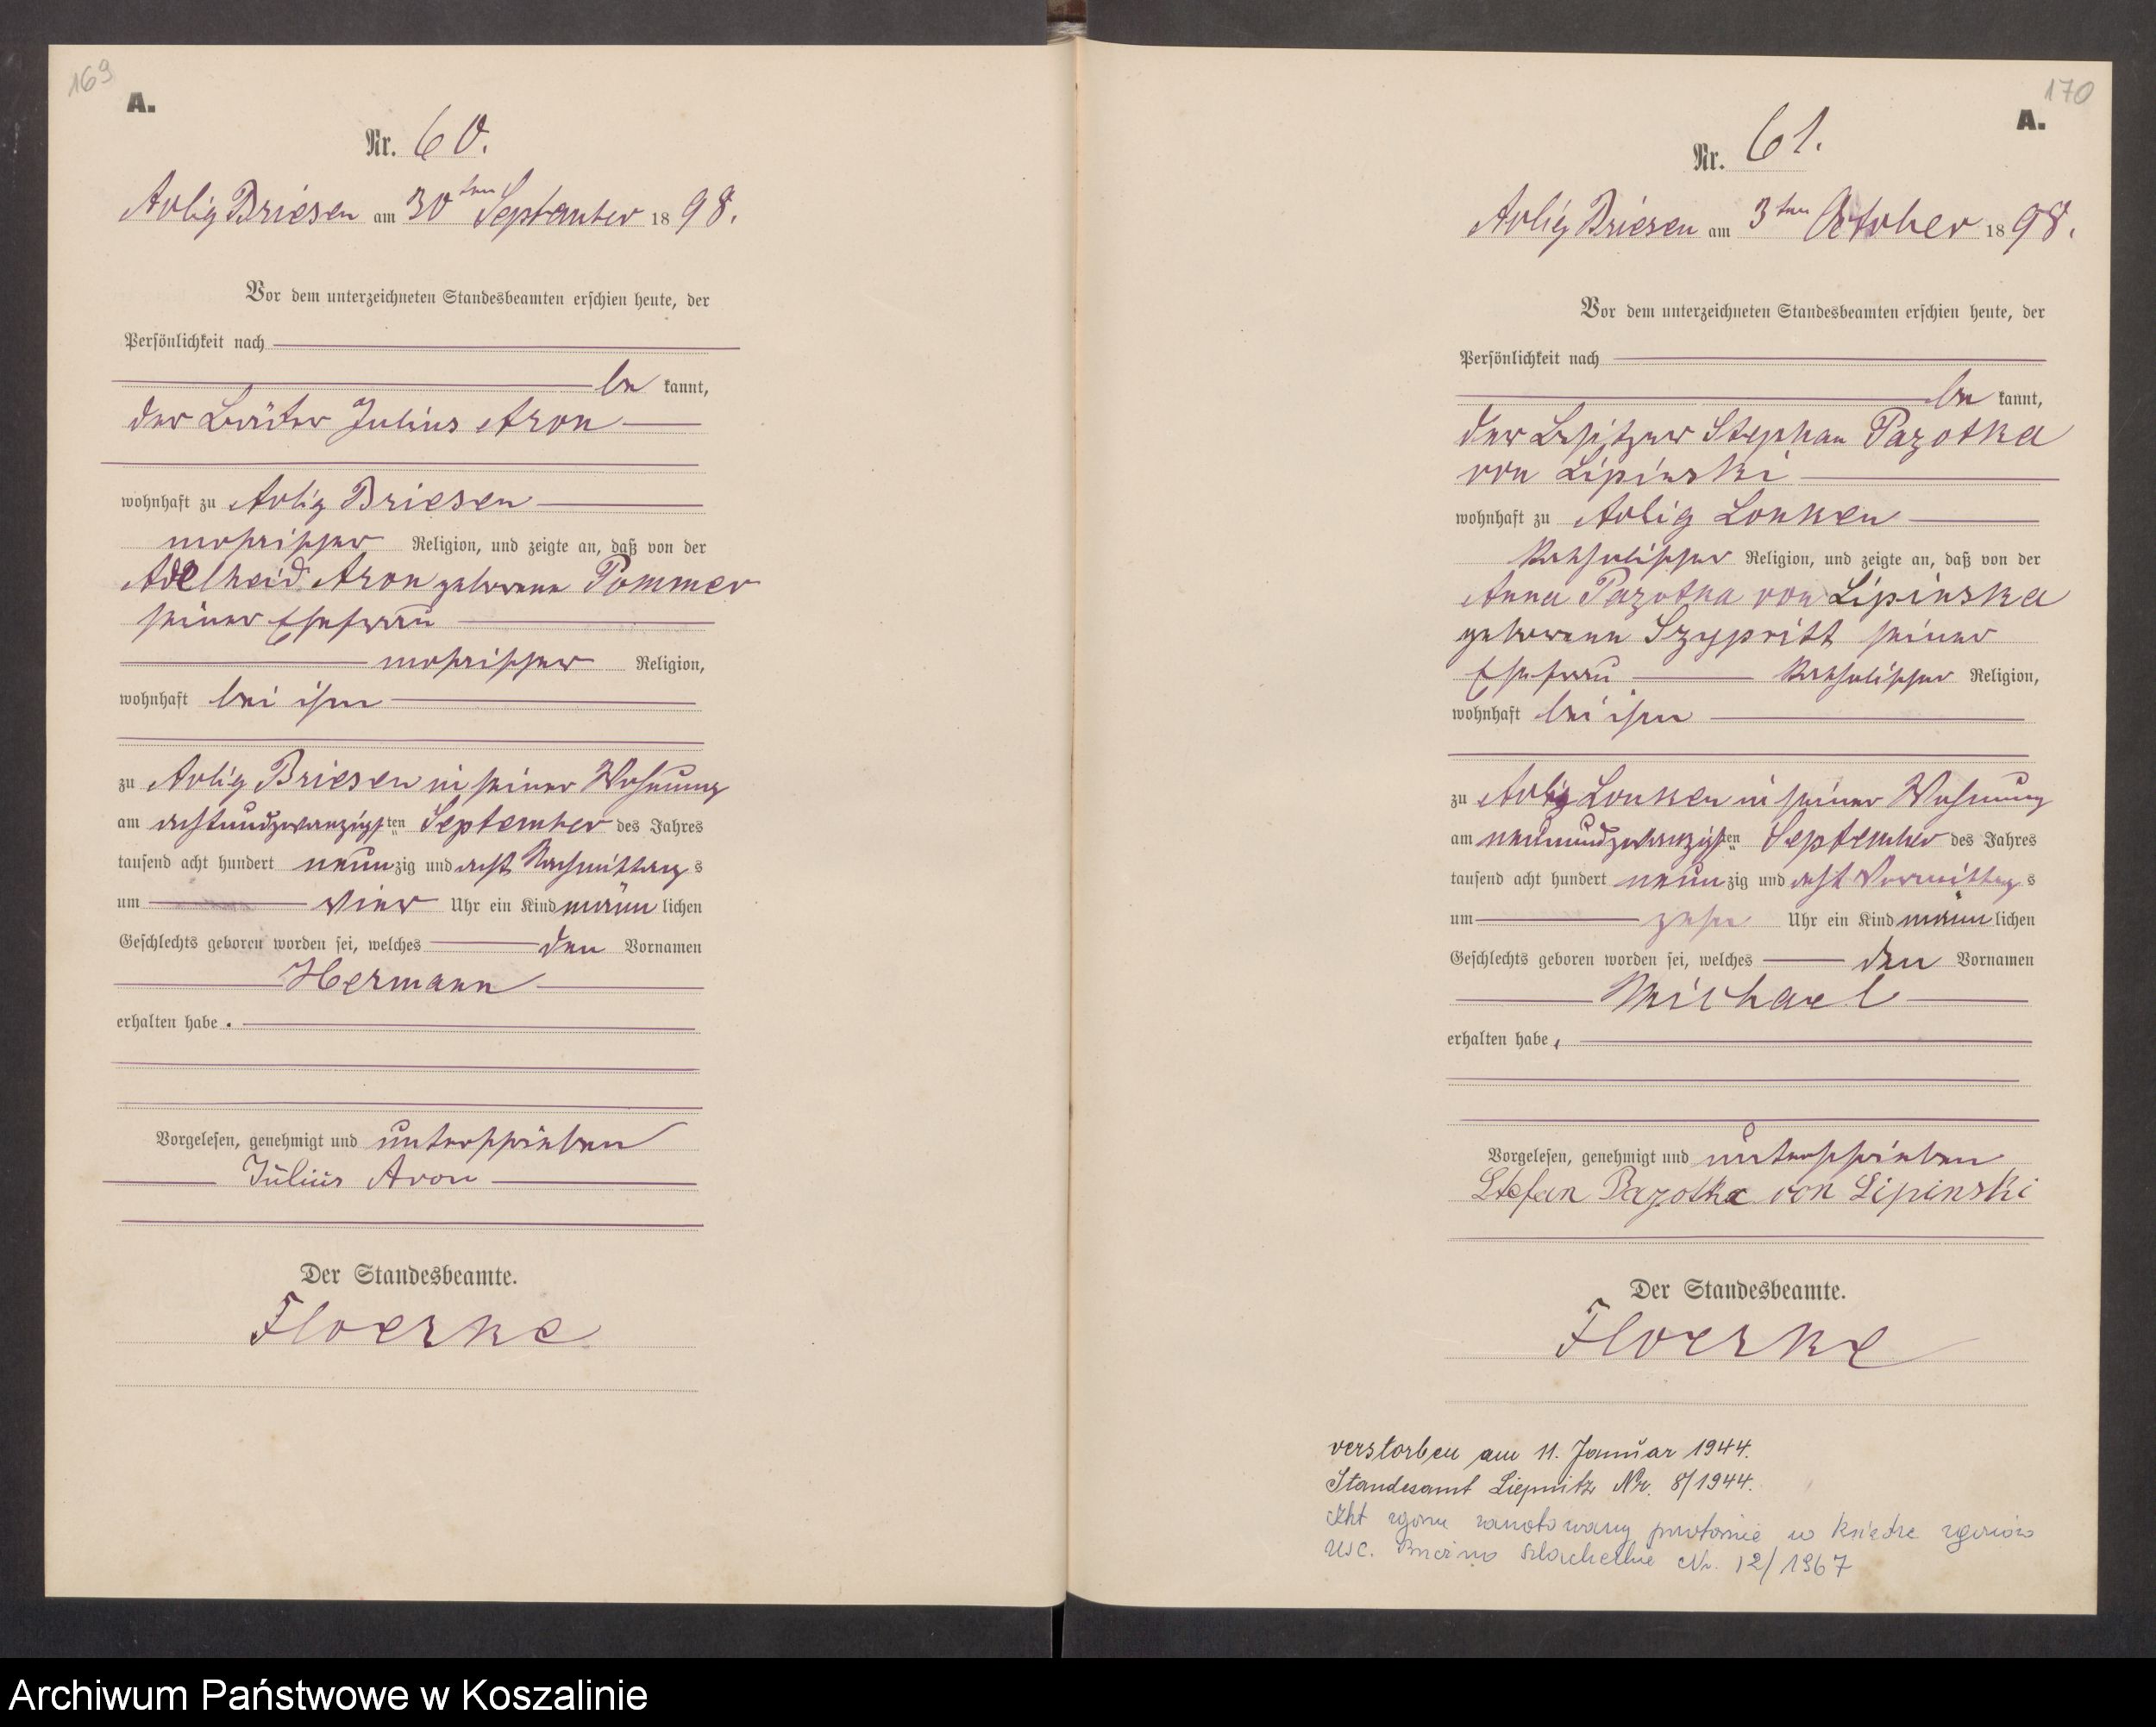 169
A.
Nr. 60.
Adlig Briesen am 30ten September 1898.
Vor dem unterzeichneten Standesbeamten erschien heute, der
Persönlichkeit nach
be kannt,
der Julius Aron
wohnhaft zu Adlig Briesen
mosaischer Religion, und zeigte an, daß von der
Adelheid Aron geborene Pommer
seiner Ehefrau
mosaischer Religion,
wohnhaft bei ihm
zu Adlig Briesen in seiner Wohnung
am achtundzwanzigsten September des Jahres
tausend acht hundert neunzig und acht Nachmittags
um vier Uhr ein Kind männlichen
Geschlechts geboren worden sei, welches den Vornamen
Hermann
erhalten habe.
Vorgelesen, genehmigt und unterschrieben
Julius Aron
Der Standesbeamte.
Floerke
170
A.
Nr. 61.
Adlig Briesen am 3ten October 1898.
Vor dem unterzeichneten Standesbeamten erschien heute, der
Persönlichkeit nach
be kannt,
der Besitzer Stephan Pazotka
von Lipinski
wohnhaft zu Adlig Lonken
katholischer Religion, und zeigte an, daß von der
Anna Pazotka von Lipinska
geborene Szypritt seiner
Ehefrau katholischer Religion,
wohnhaft bei ihm
zu Adlig Lonken in seiner Wohnung
am neunundzwanzigsten September des Jahres
tausend acht hundert neunzig und acht Vormittags
um zehn Uhr ein Kind männlichen
Geschlechts geboren worden sei, welches den Vornamen
Michael
erhalten habe,
Vorgelesen, genehmigt und unterschrieben
Stefan Pazotka von Lipinski
Der Standesbeamte.
Floerke
verstorben am 11. Januar 1944.
Standesamt Liepnitz Nr. 8/1944.
Akt zgonu zanotowany w księdze zgonów
USC. Brzeźno Szlacheckie Nr. 12/1967
Archiwum Państwowe w Koszalinie